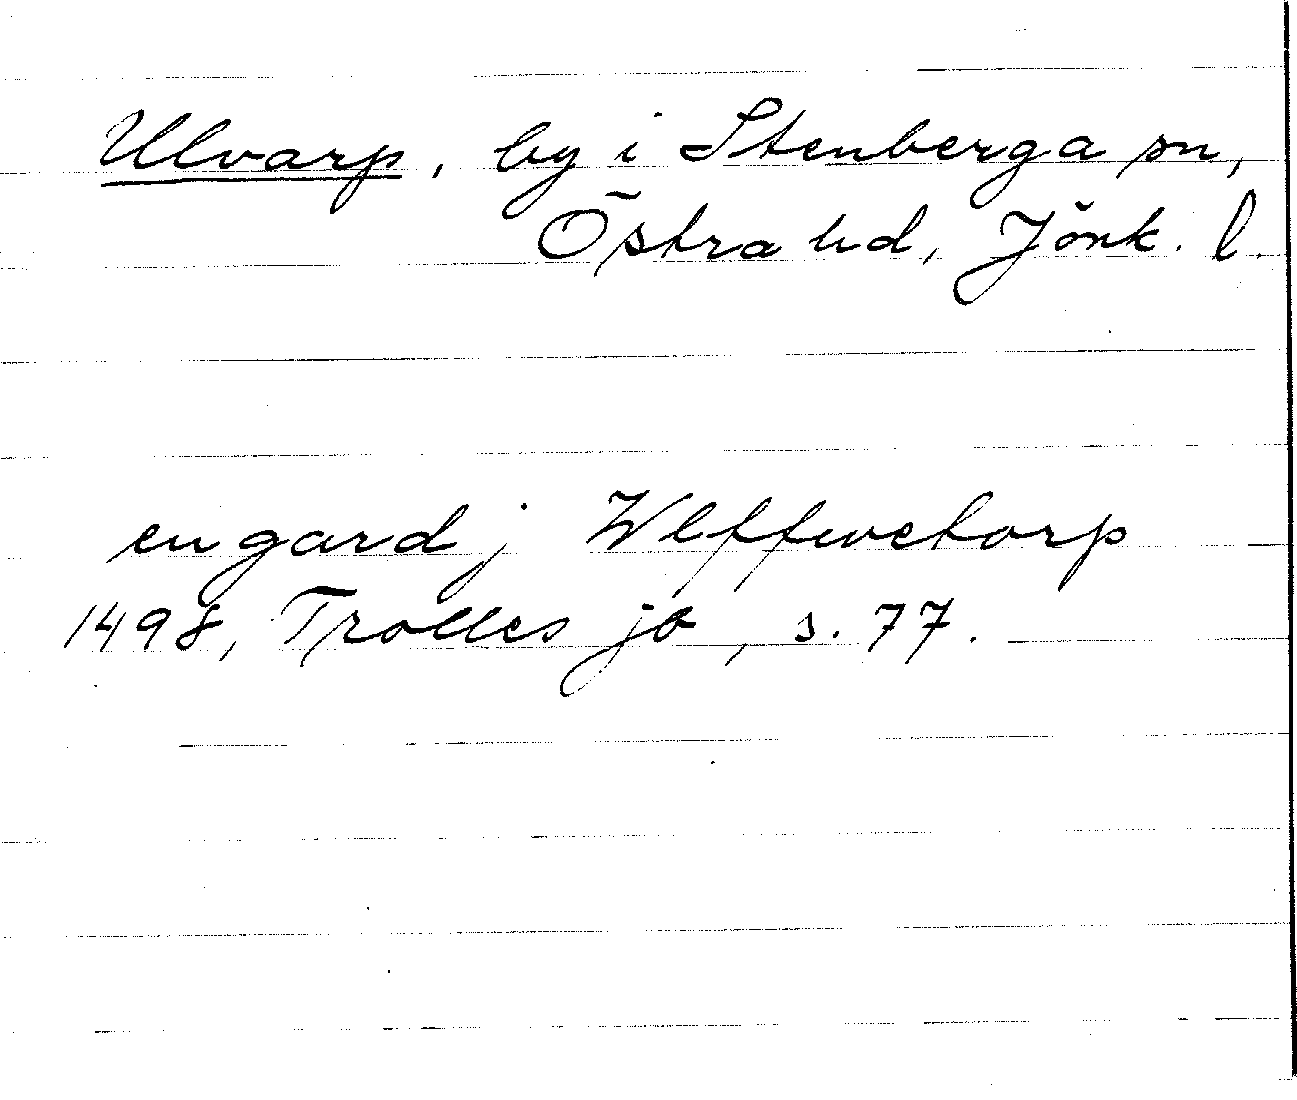 Ulvarp, by i Stenberga sn,
Östra hd, Jönk. l.
en gard j Wlffwetorp
1498, Trolles jb, s. 77.